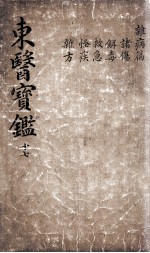 東醫寶鑑 十七
雜病篇
諸傷
解毒
救急
怪疾
雜方